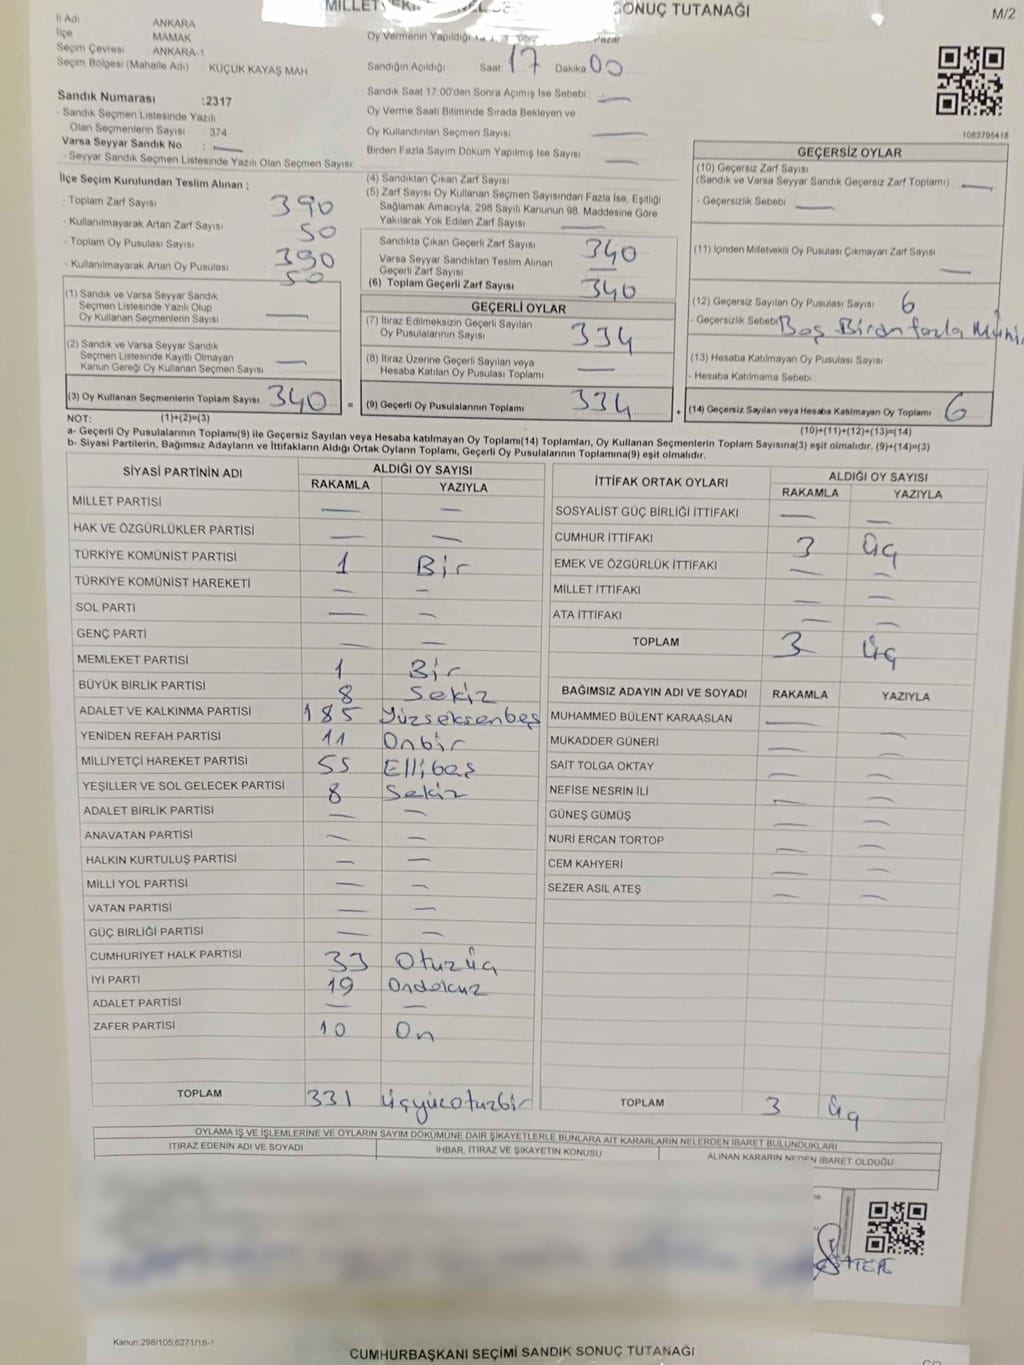 SONUÇ TUTANAĞI
M/2
İl Adı ANKARA
İlçe MAMAK
Seçim Çevresi ANKARA-1
Seçim Bölgesi (Mahalle Adı) KÜÇÜK KAYAŞ MAH
Oy Vermenin Yapıldığı
Sandığın Açıldığı Saat 17 Dakika 00
Sandık Numarası :2317
- Sandık Seçmen Listesinde Yazılı
Olan Seçmenlerin Sayısı : 374
Varsa Seyyar Sandık No : —
- Seyyar Sandık Seçmen Listesinde Yazılı Olan Seçmen Sayısı:
Sandık Saat 17:00'den Sonra Açımış İse Sebebi: —
Oy Verme Saati Bitiminde Sırada Bekleyen ve
Oy Kullandırılan Seçmen Sayısı —
Birden Fazla Sayım Döküm Yapılmış İse Sayısı —
1083795418
İlçe Seçim Kurulundan Teslim Alınan ;
- Toplam Zarf Sayısı 390
- Kullanılmayarak Artan Zarf Sayısı 50
- Toplam Oy Pusulası Sayısı 390
- Kullanılmayarak Artan Oy Pusulası 50
(1) Sandık ve Varsa Seyyar Sandık
Seçmen Listesinde Yazılı Olup
Oy Kullanan Seçmenlerin Sayısı —
(2) Sandık ve Varsa Seyyar Sandık
Seçmen Listesinde Kayıtlı Olmayan
Kanun Gereği Oy Kullanan Seçmen Sayısı —
(3) Oy Kullanan Seçmenlerin Toplam Sayısı 340 =
(4) Sandıktan Çıkan Zarf Sayısı
(5) Zarf Sayısı Oy Kullanan Seçmen Sayısından Fazla İse, Eşitliği
Sağlamak Amacıyla, 298 Sayılı Kanunun 98. Maddesine Göre
Yakılarak Yok Edilen Zarf Sayısı —
Sandıkta Çıkan Geçerli Zarf Sayısı 340
Varsa Seyyar Sandıktan Teslim Alınan
Geçerli Zarf Sayısı —
(6) Toplam Geçerli Zarf Sayısı 340
GEÇERLİ OYLAR
(7) İtiraz Edilmeksizin Geçerli Sayılan
Oy Pusulalarının Sayısı 334
(8) İtiraz Üzerine Geçerli Sayılan veya
Hesaba Katılan Oy Pusulası Toplamı —
(9) Geçerli Oy Pusulalarının Toplamı 334 +
GEÇERSİZ OYLAR
(10) Geçersiz Zarf Sayısı
(Sandık ve Varsa Seyyar Sandık Geçersiz Zarf Toplamı) —
- Geçersizlik Sebebi —
(11) İçinden Milletvekili Oy Pusulası Çıkmayan Zarf Sayısı —
(12) Geçersiz Sayılan Oy Pusulası Sayısı 6
- Geçersizlik Sebebi Boş Birden fazla
(13) Hesaba Katılmayan Oy Pusulası Sayısı
- Hesaba Katılmama Sebebi
(14) Geçersiz Sayılan veya Hesaba Katılmayan Oy Toplamı 6
NOT: (1)+(2)=(3)
(10)+(11)+(12)+(13)=(14)
a- Geçerli Oy Pusulalarının Toplamı(9) ile Geçersiz Sayılan veya Hesaba katılmayan Oy Toplamı(14) Toplamları, Oy Kullanan Seçmenlerin Toplam Sayısına(3) eşit olmalıdır. (9)+(14)=(3)
b- Siyasi Partilerin, Bağımsız Adayların ve İttifakların Aldığı Ortak Oyların Toplamı, Geçerli Oy Pusulalarının Toplamına(9) eşit olmalıdır.
SİYASİ PARTİNİN ADI ALDIĞI OY SAYISI
RAKAMLA YAZIYLA
MİLLET PARTİSİ — —
HAK VE ÖZGÜRLÜKLER PARTİSİ — —
TÜRKİYE KOMÜNİST PARTİSİ 1 Bir
TÜRKİYE KOMÜNİST HAREKETİ — —
SOL PARTİ — —
GENÇ PARTİ — —
MEMLEKET PARTİSİ 1 Bir
BÜYÜK BİRLİK PARTİSİ 8 Sekiz
ADALET VE KALKINMA PARTİSİ 185 Yüzseksenbeş
YENİDEN REFAH PARTİSİ 11 Onbir
MİLLİYETÇİ HAREKET PARTİSİ 55 Ellibeş
YEŞİLLER VE SOL GELECEK PARTİSİ 8 Sekiz
ADALET BİRLİK PARTİSİ — —
ANAVATAN PARTİSİ — —
HALKIN KURTULUŞ PARTİSİ — —
MİLLİ YOL PARTİSİ — —
VATAN PARTİSİ — —
GÜÇ BİRLİĞİ PARTİSİ — —
CUMHURİYET HALK PARTİSİ 33 Otuzüç
İYİ PARTİ 19 Ondokuz
ADALET PARTİSİ — —
ZAFER PARTİSİ 10 On
TOPLAM 331 Üçyüzotuzbir
İTTİFAK ORTAK OYLARI ALDIĞI OY SAYISI
RAKAMLA YAZIYLA
SOSYALİST GÜÇ BİRLİĞİ İTTİFAKI — —
CUMHUR İTTİFAKI 3 Üç
EMEK VE ÖZGÜRLÜK İTTİFAKI — —
MİLLET İTTİFAKI — —
ATA İTTİFAKI — —
TOPLAM 3 Üç
BAĞIMSIZ ADAYIN ADI VE SOYADI RAKAMLA YAZIYLA
MUHAMMED BÜLENT KARAASLAN — —
MUKADDER GÜNERİ — —
SAİT TOLGA OKTAY — —
NEFİSE NESRİN İLİ — —
GÜNEŞ GÜMÜŞ — —
NURİ ERCAN TORTOP — —
CEM KAHYERİ — —
SEZER ASİL ATEŞ — —
TOPLAM 3 Üç
OYLAMA İŞ VE İŞLEMLERİNE VE OYLARIN SAYIM DÖKÜMÜNE DAİR ŞİKAYETLERLE BUNLARA AİT KARARLARIN NELERDEN İBARET BULUNDUKLARI
İTİRAZ EDENİN ADI VE SOYADI İHBAR, İTİRAZ VE ŞİKAYETİN KONUSU ALINAN KARARIN NEDEN İBARET OLDUĞU
Kanun:298/105;6271/18-1
CUMHURBAŞKANI SEÇİMİ SANDIK SONUÇ TUTANAĞI